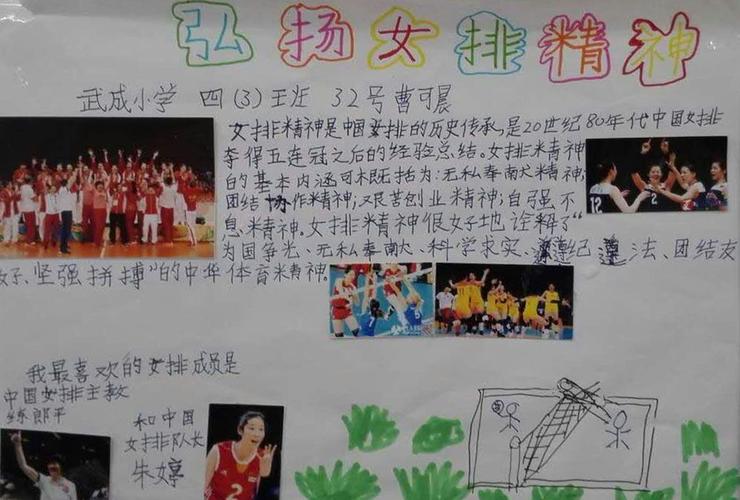 弘扬女排精神
武成小学 四(3)王班 32号曹可晨
女排精神是中国女排的历史传承,是20世纪80年代中国女排
夺得五连冠之后的经验总结。女排精神
的基本内涵可概括为:无私奉献精神;
团结协作精神;艰苦创业精神;自强不
息精神。女排精神很好地诠释了“
为国争光、无私奉献、科学求实、遵纪遵法、团结友
好、坚强拼搏”的中华体育精神。
我最喜欢的女排成员是
中国女排主教
练郎平
和中国
女排队长
朱婷
12
2
5
2